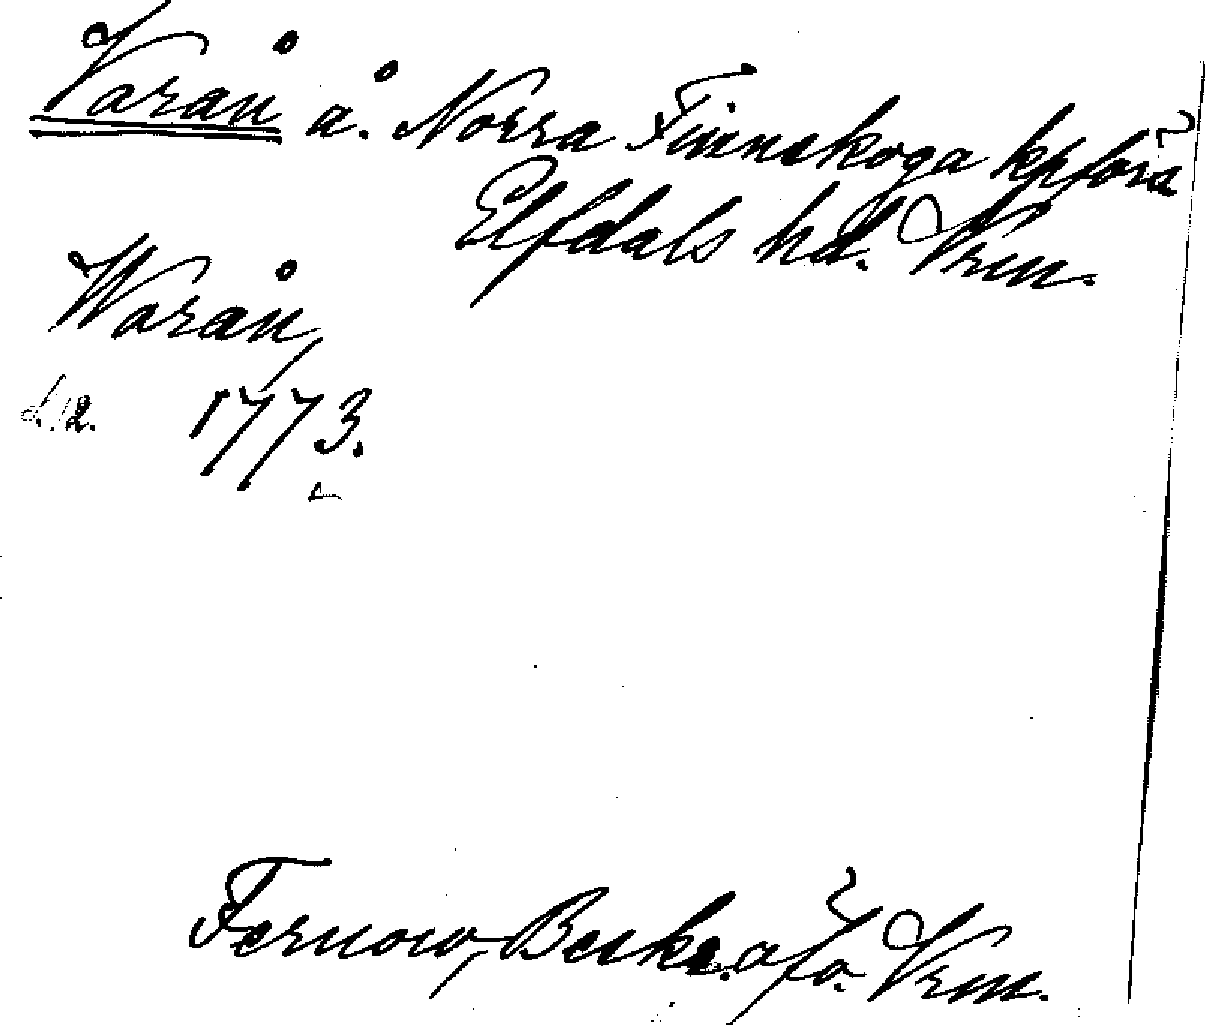 Varån å. Norra Finnskoga kpförs
Elfdals hd. Vrm.
Warån,
d. 12. 1773.
Fernow, Beskr. öfv. Vrm.